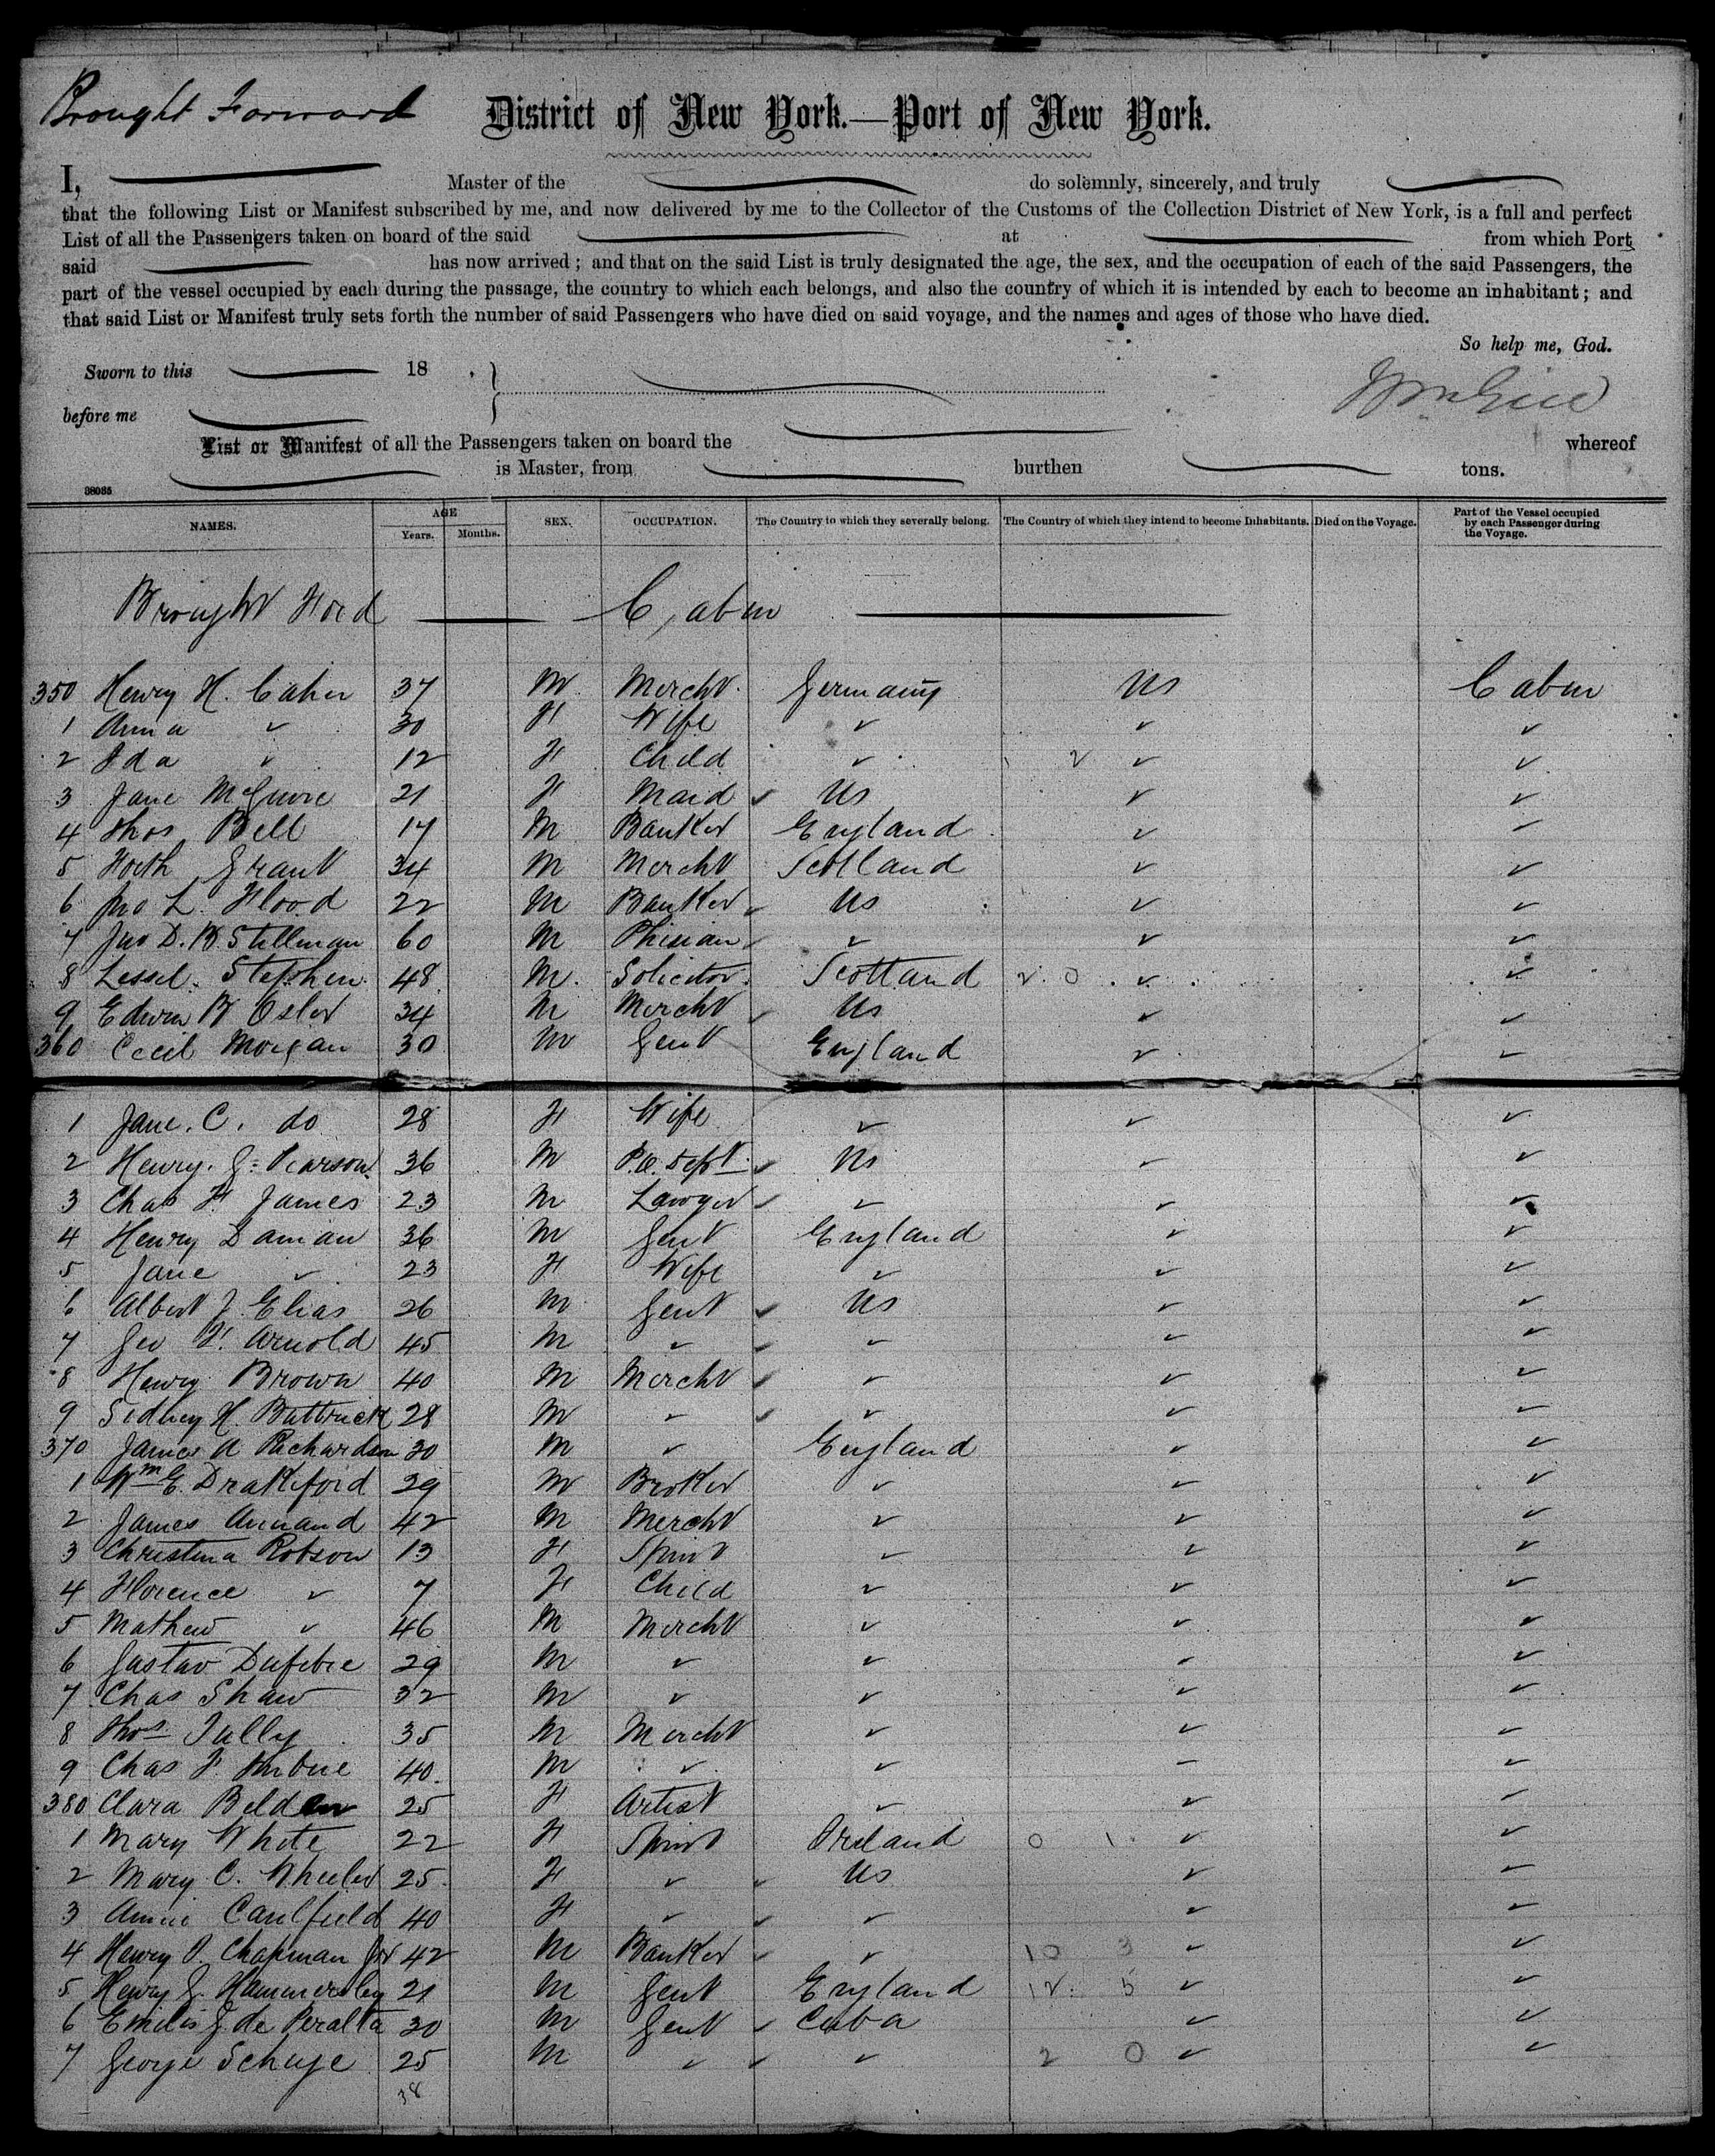 Brought Forward
District of New York.—Port of New York.
I, Master of the do solemnly, sincerely, and truly
that the following List or Manifest subscribed by me, and now delivered by me to the Collector of the Customs of the Collection District of New York, is a full and perfect
List of all the Passengers taken on board of the said at from which Port
said has now arrived; and that on the said List is truly designated the age, the sex, and the occupation of each of the said Passengers, the
part of the vessel occupied by each during the passage, the country to which each belongs, and also the country of which it is intended by each to become an inhabitant; and
that said List or Manifest truly sets forth the number of said Passengers who have died on said voyage, and the names and ages of those who have died.
So help me, God.
Sworn to this 18 .
before me
List or Manifest of all the Passengers taken on board the whereof
is Master, from burthen tons.
38035
NAMES. AGE Years. Months. SEX. OCCUPATION. The Country to which they severally belong. The Country of which they intend to become Inhabitants. Died on the Voyage. Part of the Vessel occupied by each Passenger during the Voyage.
Brought Ford Cabin
350 Henry H. Cahn 37 M Mercht. Germany US Cabin
1 Anna ✓ 30 F Wife ✓ ✓ ✓
2 Ida ✓ 12 F Child ✓ 2 ✓ ✓
3 Jane McGuire 21 F Maid ✓ US ✓ ✓
4 Thos Bell 17 M Banker England ✓ ✓
5 Grant 34 M Mercht Scotland ✓ ✓
6 Jno L. Flood 22 M Banker ✓ US ✓ ✓
7 Jno D. B. Stillman 60 M Phisian ✓ ✓ ✓ ✓
8 Lessel. Stephen 48 M. Solicitor. Scotland 2 0 ✓ ✓
9 Edwin B Osler 34 M Mercht ✓ US ✓ ✓
360 Cecil Morgan 30 M Gent England ✓ ✓
1 Jane. C. do 28 F Wife ✓ ✓ ✓
2 Henry. G. Pearson 36 M P.O. Dept ✓ US ✓ ✓
3 Chas F James 23 M Lawyer ✓ ✓ ✓ ✓
4 Henry Damian 36 M Gent England ✓ ✓
5 Jane ✓ 23 F Wife ✓ ✓ ✓
6 Albert J. Elias 26 M Gent ✓ US ✓ ✓
7 Geo F. Arnold 45 M ✓ ✓ ✓ ✓ ✓
8 Henry Brown 40 M Mercht ✓ ✓ ✓ ✓
9 Sidney H. Buttrick 28 M ✓ ✓ ✓ ✓ ✓
370 James A Richardson 30 M ✓ England ✓ ✓
1 Wm E. Drakeford 29 M Broker ✓ ✓ ✓
2 James Annand 42 M Mercht ✓ ✓ ✓
3 Christina Robson 13 F Spinst ✓ ✓ ✓
4 Florence ✓ 7 F Child ✓ ✓ ✓
5 Mathew ✓ 46 M Mercht ✓ ✓ ✓
6 Gustav 29 M ✓ ✓ ✓ ✓
7 Chas Shaw 32 M ✓ ✓ ✓ ✓
8 Thos Tully 35 M Mercht ✓ ✓ ✓
9 Chas F. 40 M ✓ ✓ ✓ ✓
380 Clara Belden 25 F Artist ✓ ✓ ✓
1 Mary White 22 F Spinst Ireland 0 1 ✓ ✓
2 Mary C. Wheeler 25 F ✓ ✓ US ✓ ✓
3 Annie Caulfield 40 F ✓ ✓ ✓ ✓ ✓
4 Henry P. Chapman Jnr 42 M Banker ✓ ✓ 10 3 ✓ ✓
5 Henry G. Hammersley 21 M Gent England 12 5 ✓ ✓
6 Emilio G. de Peralta 30 M Gent ✓ Cuba ✓ ✓
7 George Schuje 25 M ✓ ✓ ✓ 2 0 ✓ ✓
38